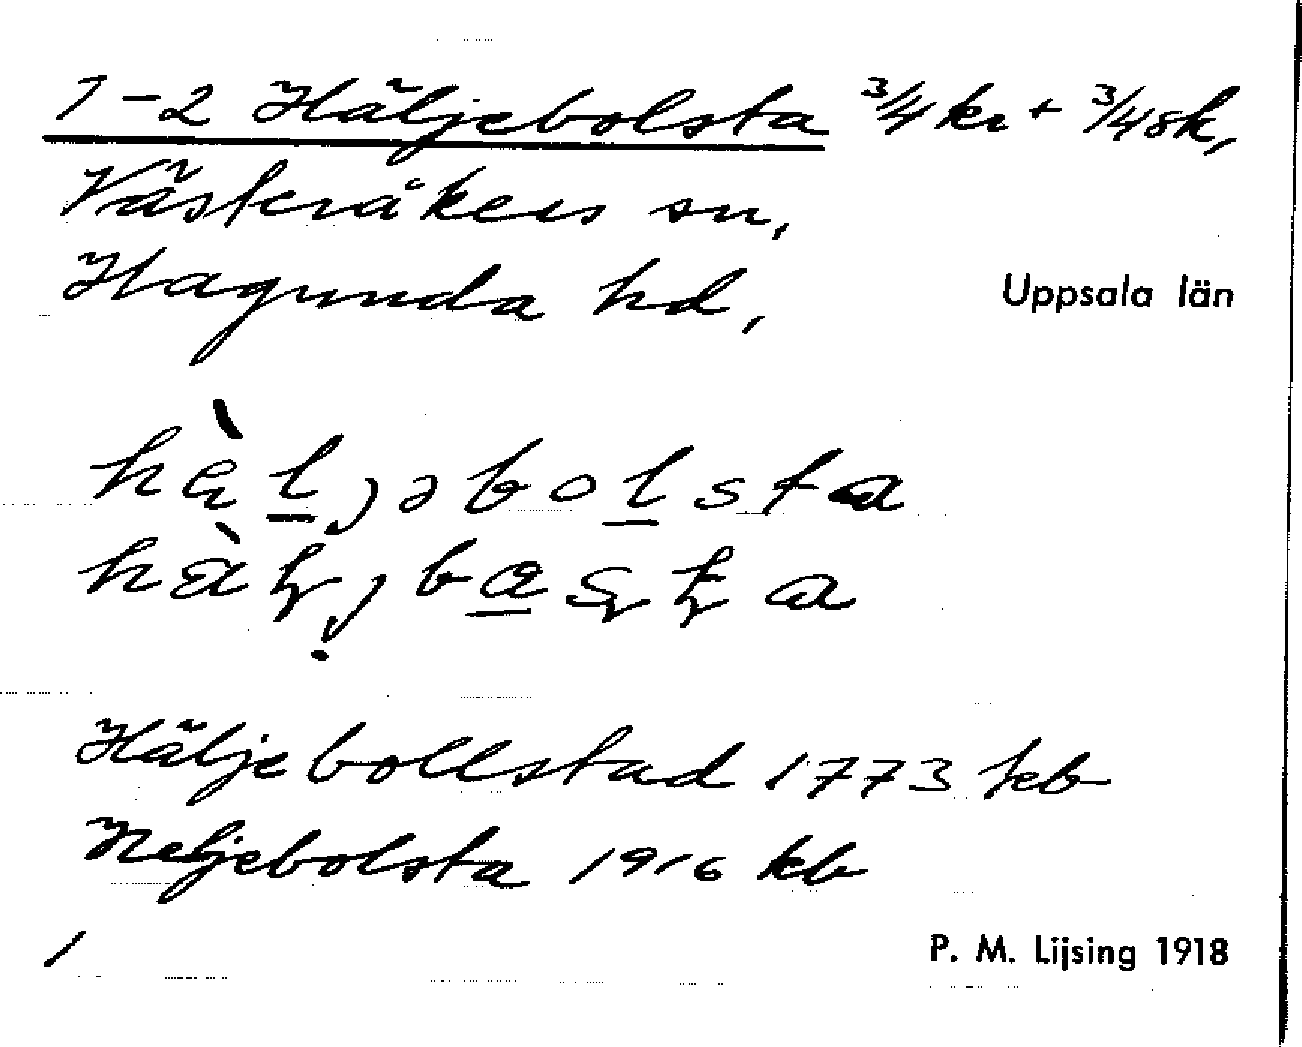 1-2 Häljebolsta 3/4 kr + 3/4 sk,
Västeråkers sn,
Hagunda hd,
Uppsala län
Häljebollstad 1773 kb
Heljebolsta 1916 kb
1
P. M. Lijsing 1918